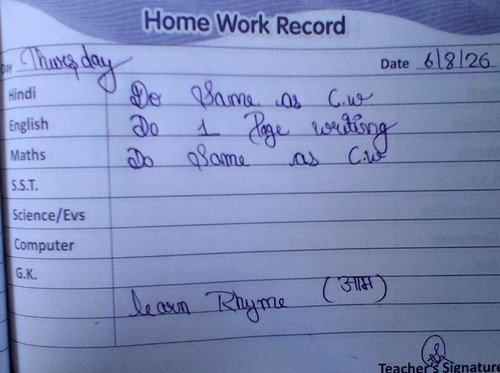 Home Work Record
Day Thursday Date 6/8/26
Hindi Do Same as C.w
English Do 1 Page writing
Maths Do Same as C.w
S.S.T.
Science/Evs
Computer
G.K.
learn Rhyme (आम)
Teacher's Signature